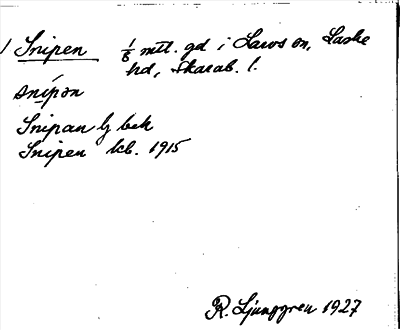 1 Snipen 1/8 mtl. gd i Larvs sn, Laske
hd, Skarab. l.
snípən
Snipan lj bek
Snipen kb. 1915
R. Ljunggren 1927